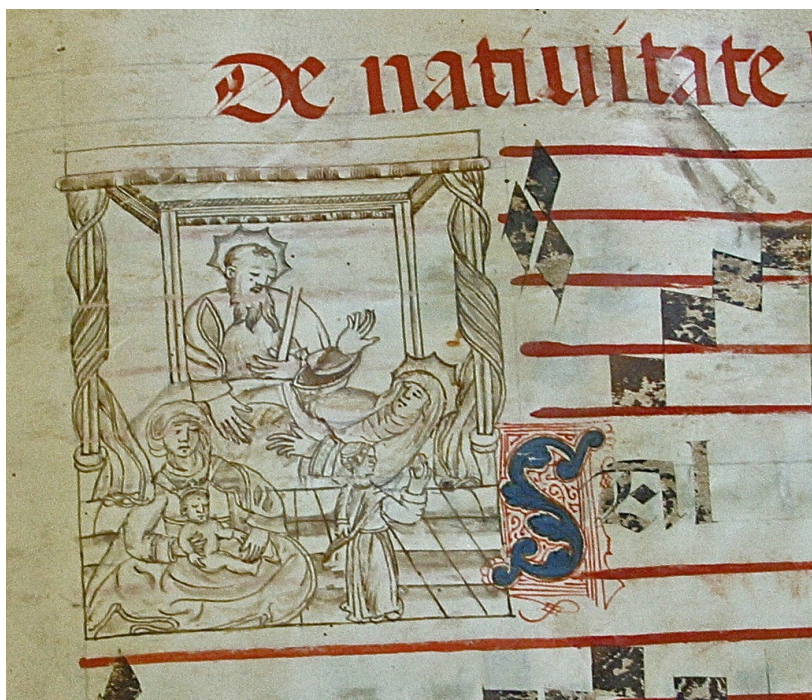 De natiuitate
Sol